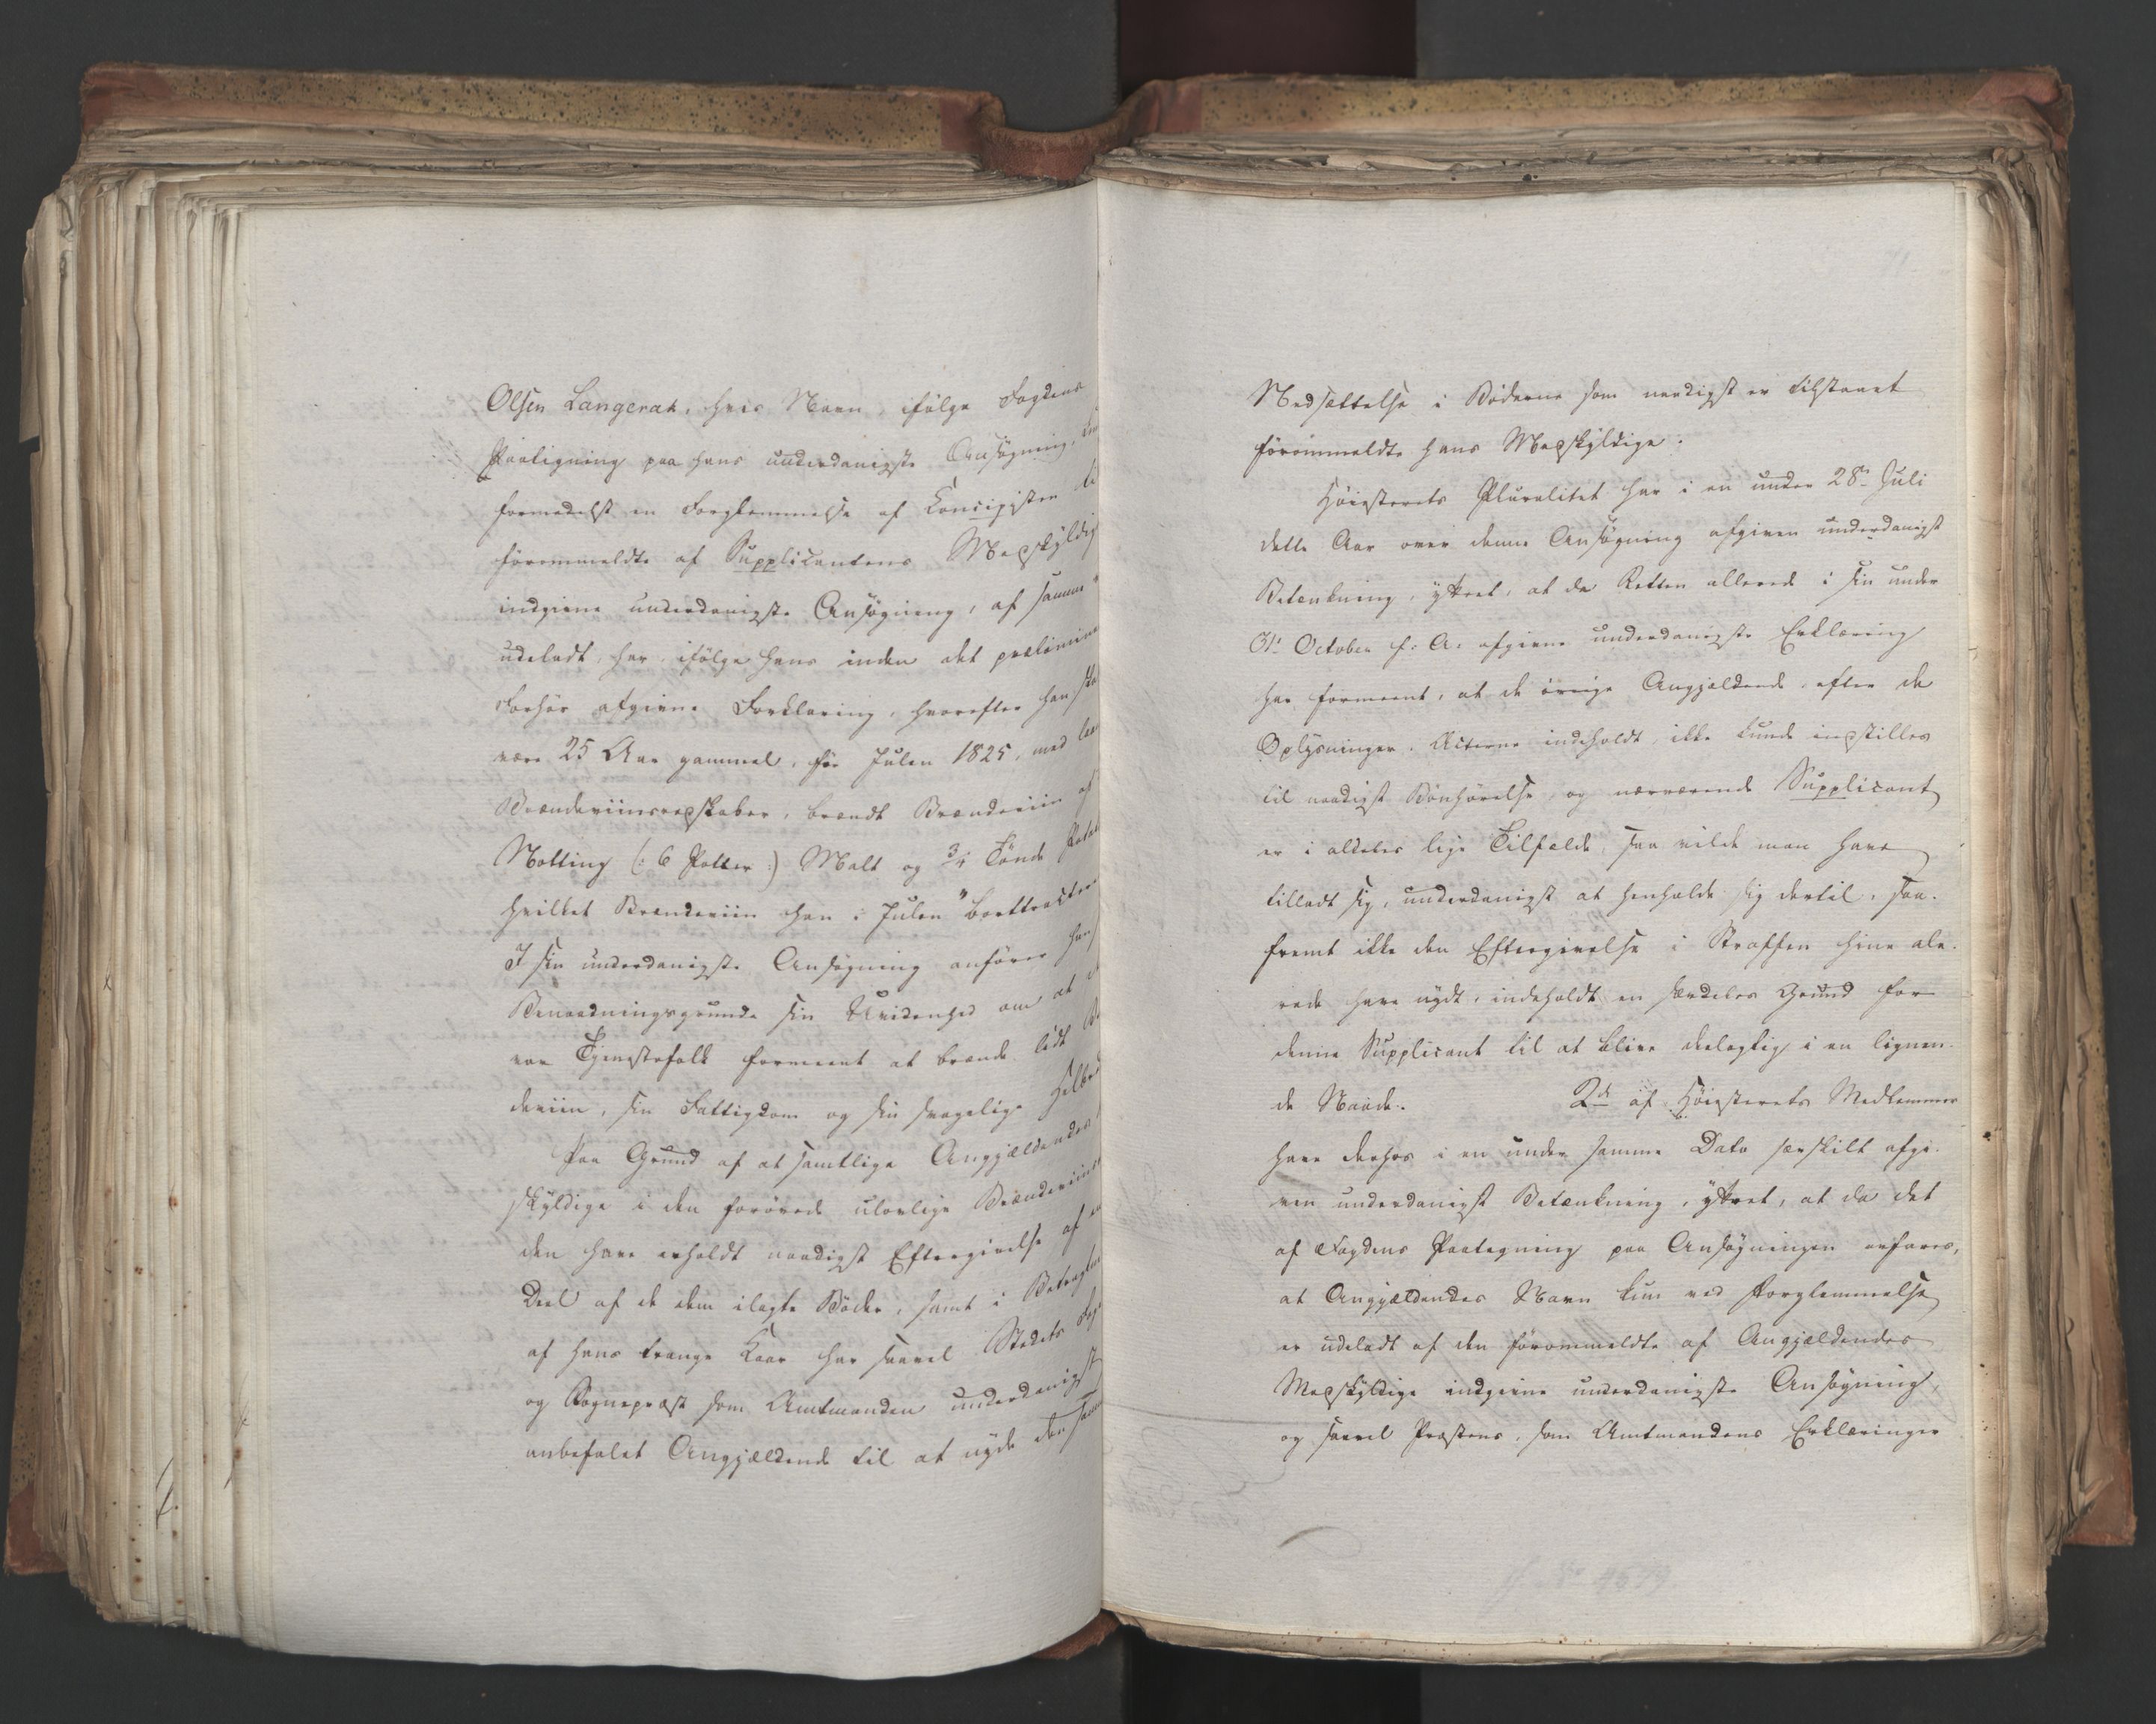 Olsen Langerak, hvis Navn, ifølge Fogdens
Paategning paa hans underdanigste Ansøgning,
formedelst en Forglemmelse af Concipisten
forommeldte af Supplicantens Medskyldig
indgivne underdanigste Ansøgning, af samme
udeladt, har, ifølge hans inden det prælimin
Forhør afgivne Forklaring, hvorefter han
være 25 Aar gammel, før Julen 1825, med
Brændeviinsredskaber, brændt Brændeviin af
Notting (: 6 Potter :) Malt og 3/4 Tønde
hvilket Brændeviin han i Julen "borttracter
I sin underdanigste Ansøgning anfører han
Benaadningsgrunde sin Uvidenhed om at
var Tjenestefolk formeent at brænde lidt
deviin, sin Fattigdom og sin svagelige
Paa Grund af at samtlige Angjældendes
skyldige i den forøvede ulovlige Brændeviins
den have erholdt naadigst Eftergivelse af en
Deel af de dem ilagte Bøder, samt i Betragtn
af hans trange Kaar har saavel Stedets
og Sognepræst som Amtmanden underdanigst
anbefalet Angjældende til at nyde den samme
Nedsættelse i Bøderne som naadigst er tilstaaet
forommeldte hans Medskyldige.
Høiesterets Pluralitet har i en under 28de Juli
dette Aar over denne Ansøgning afgiven underdanigst
Betænkning, yttret, at da Retten allerede i sin under
31te October f: A: afgivne underdanigste Erklæring
har formeent, at de øvrige Angjældende, efter de
Oplysninger, Acterne indeholdt, ikke kunde indstilles
til naadigst Bønhørelse, og nærværende Supplicant
er i aldeles lige Tilfælde, saa vilde man have
tilladt sig, underdanigst at henholde sig dertil, saa-
fremt ikke den Eftergivelse i Straffen hine alle-
rede have nydt, indeholdt en særdeles Grund for
denne Supplicant til at blive deelagtig i en lignen-
de Naade. 2de af Høiesterets Medlemmer
have derhos i en under samme Dato særskilt afgi-
ven underdanigst Betænkning, yttret, at da det
af Fogdens Paategning paa Ansøgningen erfares,
at Angjældendes Navn kun ved Forglemmelse
er udeladt af den forommeldte af Angjældendes
Medskyldige indgivne underdanigste Ansøgning,
og saavel Præstens, som Amtmandens Erklæringer